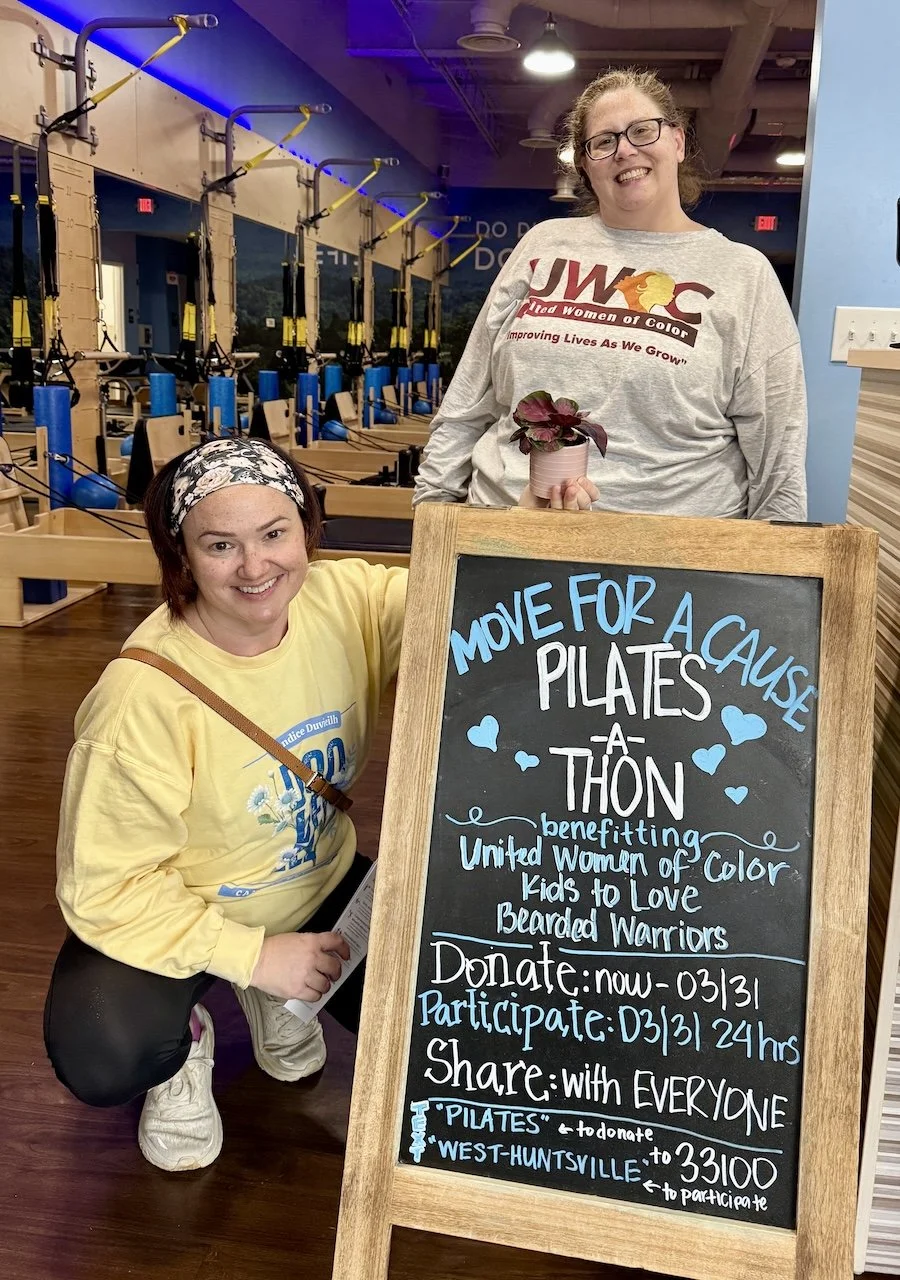 EXIT
EXIT
DO
DO
UWOC
United Women of Color
Improving Lives As We Grow"
MOVE FOR A CAUSE
PILATES
-A-
THON
benefitting
United Women of Color
Kids to Love
Bearded Warriors
Donate: now - 03/31
Participate: 03/31 24hrs
Share: with EVERYONE
TEXT
"PILATES" ← to donate
"WEST-HUNTSVILLE" to 33100
← to participate